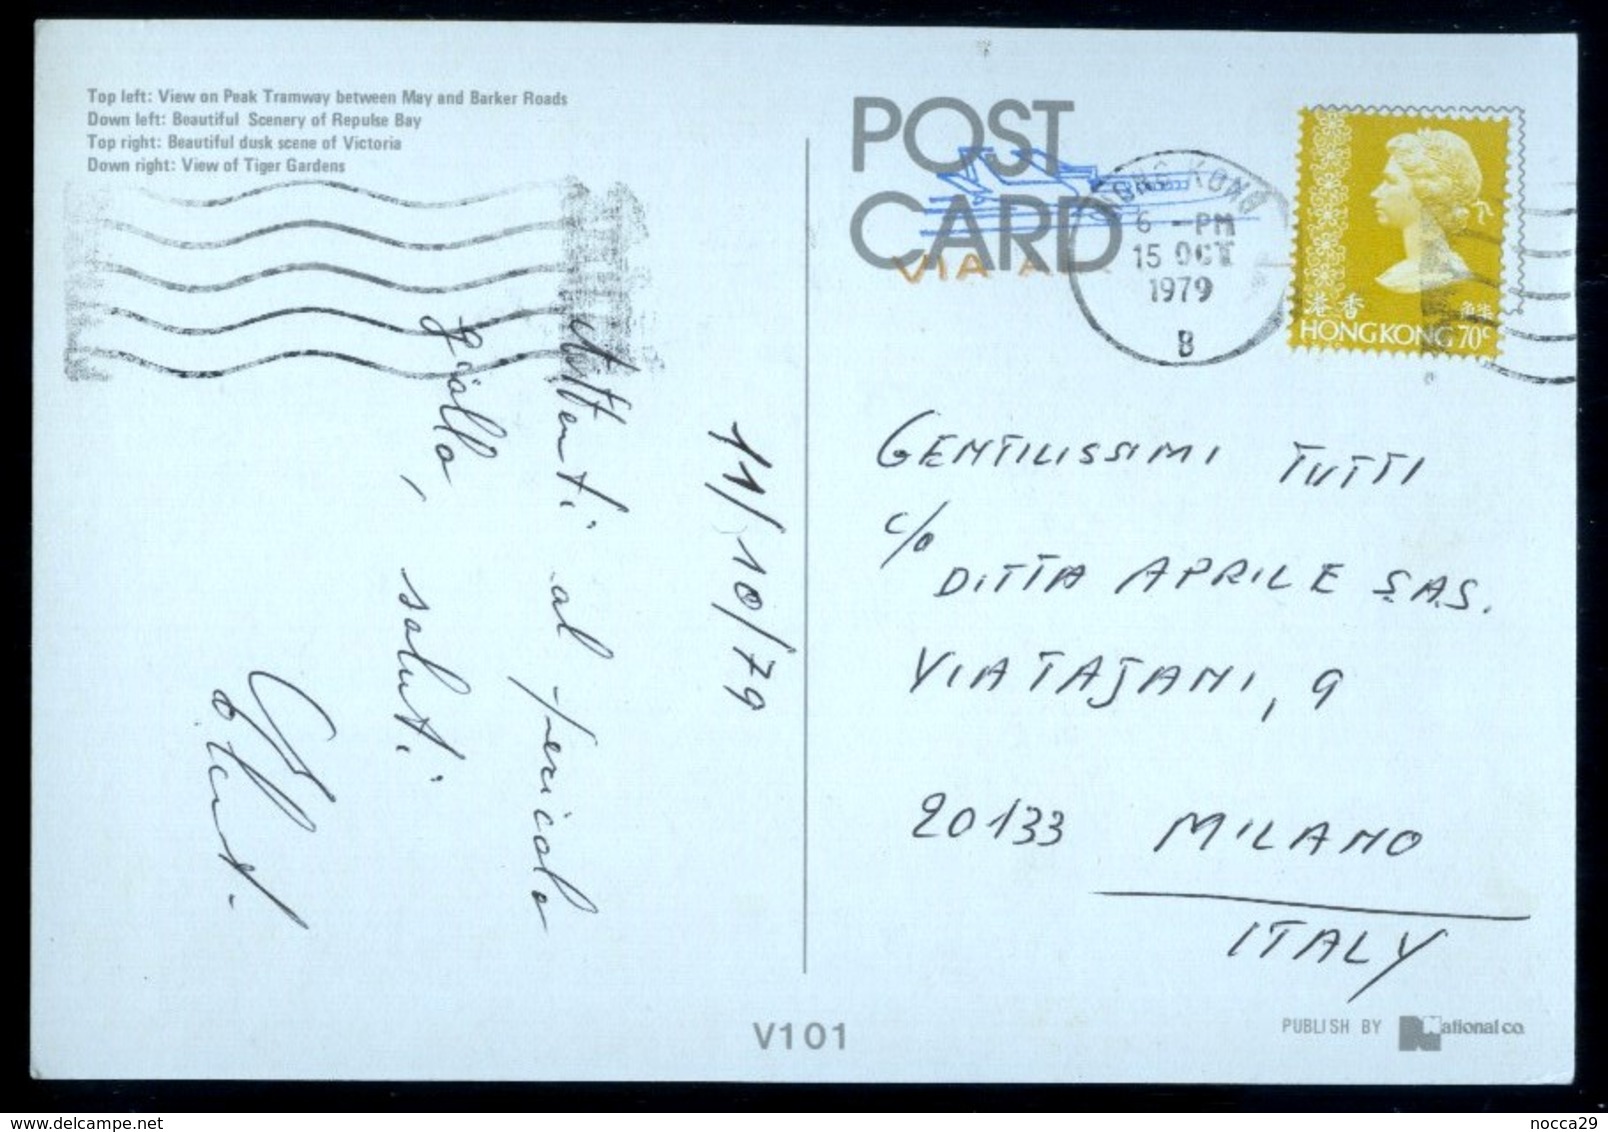 Top left: View on Peak Tramway between May and Barker Roads
Down left: Beautiful Scenery of Repulse Bay
Top right: Beautiful dusk scene of Victoria
Down right: View of Tiger Gardens
POST
CARD
VIA
HONG KONG
6 -PM
15 OCT
1979
B
港香
HONG KONG 70c
11/10/79
Attenti al pericolo
giallo, saluti
GENTILISSIMI TUTTI
c/o
DITTA APRILE S.A.S.
VIA TAJANI, 9
20133 MILANO
ITALY
V101
PUBLISH BY National co.
delcampe.net
nocca29